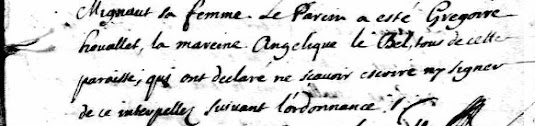 Mignaut sa femme. Le Parein a esté Gregoire
houallet, la mareine Angelique le Bel, tous de cette
paroisse, qui ont declare ne scavoir escrire ny signer
de ce interpellez suivant l'ordonnance ./.